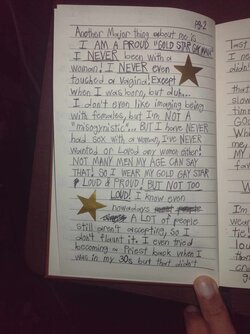 pg.2
Another Major thing about me is
I AM A PROUD "GOLD STAR GAY MAN!"
I NEVER been with a
woman! I NEVER even
touched a Vagina! Except
when I was born, but duh...
I don't even like imaging being
with females, but I'm NOT A
"misogynistic"... BUT I have NEVER
had sex with a woman, I've NEVER
wanted or loved any women either!
NOT MANY MEN MY AGE CAN SAY
THAT! SO I WEAR MY GOLD GAY STAR
LOUD & PROUD! BUT NOT TOO
LOUD! I know even
nowadays
A LOT of people
still aren't accepting, so I
don't flaunt it. I even tried
becoming a Priest back when I
was in my 30s but that didn't
last
I ne
didn'
that
slow
tim
GO
Wh
me,
MY
fa
I'm
we
tie!
lou
tha
fr
go